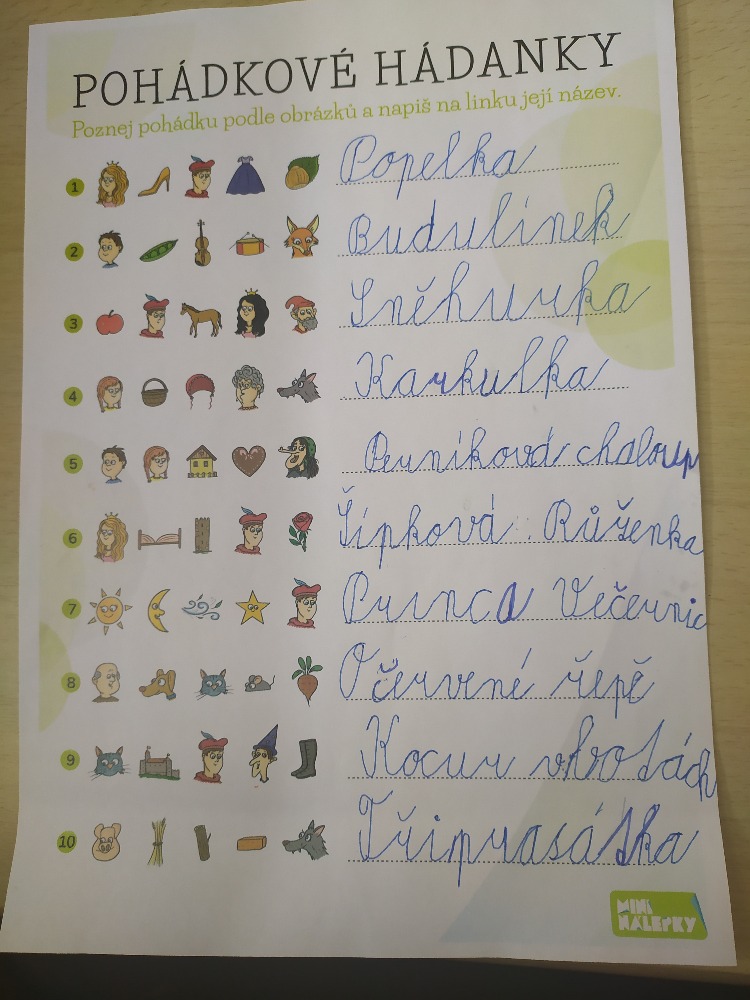 POHÁDKOVÉ HÁDANKY
Poznej pohádku podle obrázků a napiš na linku její název.
1 Popelka
2 Budulínek
3 Sněhurka
4 Karkulka
5 Perníková chaloup
6 Šípková Růženka
7 Princa Večernic
8 O červené řepě
9 Kocur v botách
10 Tři prasátka
MINI
NÁLEPKY